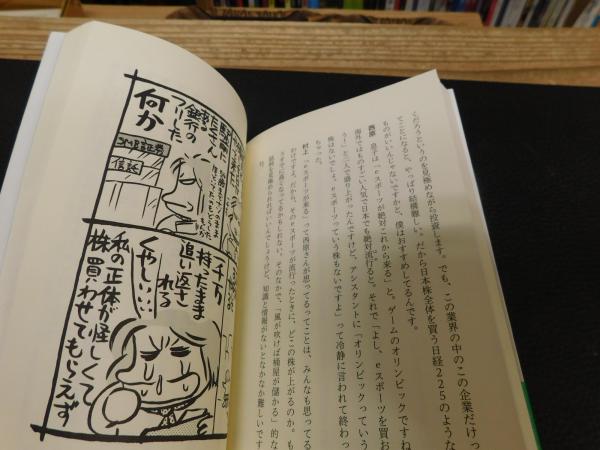 くだろうというのを見極めながら投資します。でも、この業界の中のこの企業だけっ
てことになると、やっぱり結構難しい。だから日本株全体を買う日経225のような
ものがいいんじゃないですかと、僕はおすすめしてるんです。
西原 息子は「eスポーツが絶対これから来る」と。ゲームのオリンピックですね
海外ではものすごい人気で日本でも絶対流行ると。それで「よし、eスポーツを買お
う!」と二人で盛り上がったんですけど、アシスタントに「オリンピックっていう
株はないでしょ。eスポーツっていう株もないですよ」って冷静に言われて終わっ
ちゃった。
村上 「eスポーツが来る」って西原さんが思ってるってことは、みんなも思ってる
わけですよ。だから、そのeスポーツが流行ったときに、どこの株が上がるのか。も
うすでに高くなってるかもしれない。そのなかで、「風が吹けば桶屋が儲かる」的な
銘柄を見極められればいいんでしょうけど、知識と情報がないとなかなか難しいです
何か
フリした
銀行の
SMB証券
信託
持ったまま
追い返さ
れる
くやしい…
私の正体が怪しくて
株買わせてもらえず